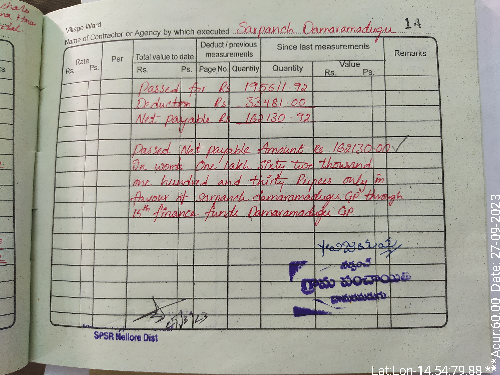 Village Ward
Name of Contractor or Agency by which executed Sarpanch Damaramadugu 14
Rate
Rs. Ps.
Per
Total value to date
Rs. Ps.
Deduct / previous measurements
Page No. Quantity
Since last measurements
Quantity
Value
Rs. Ps.
Remarks
Passed for Rs 195611.92
Deduction Rs 33481.00
Net Payable Rs 162130.92
Passed Net payable Amount Rs 162130.00
In words One lakh sixty two thousand
one hundred and thirty Rupees only in
favour of sarpanch damaramadugu GP through
15th finance funds Damaramadugu GP
సర్పంచ్
గ్రామ పంచాయితి
దామరమడుగు
SPSR Nellore Dist
Lat Lon-14.54:79.88 **Acur:60.00 Date: 27-09-2023